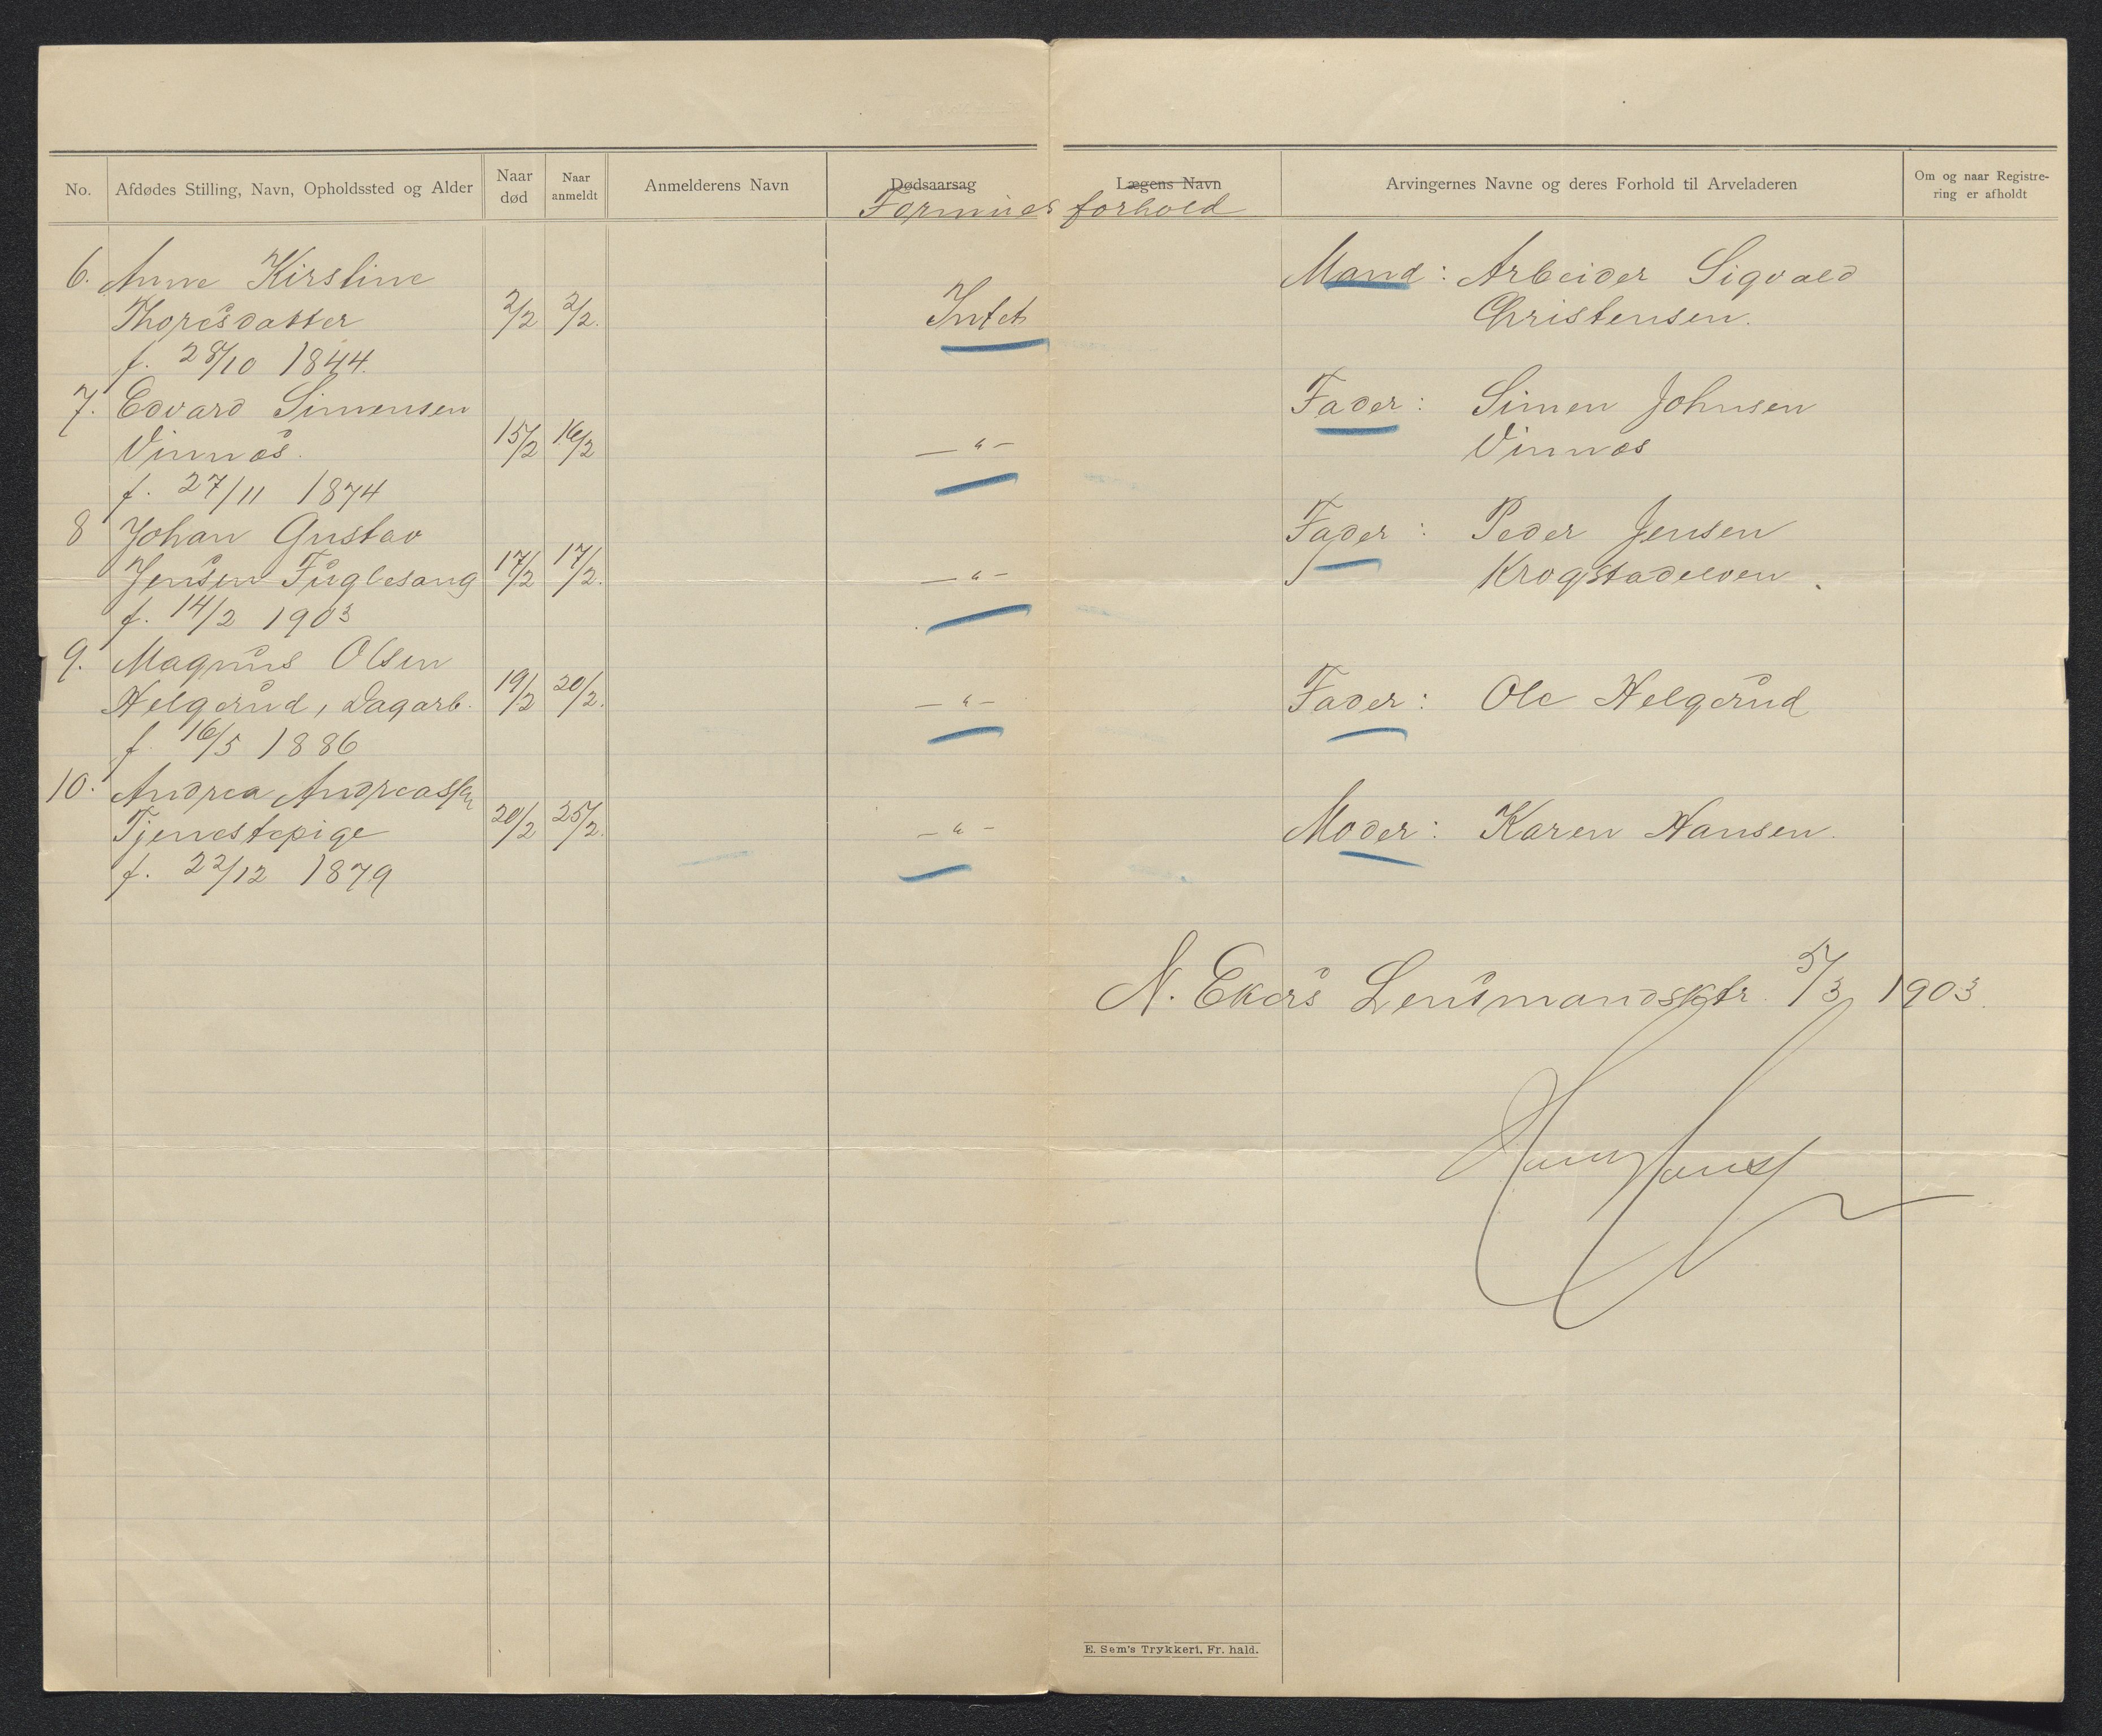 No.
Afdødes Stilling, Navn, Opholdssted og Alder
Naar død
Naar anmeldt
Anmelderens Navn
Dødsaarsag
Lægens Navn
Formues forhold
Arvingernes Navne og deres Forhold til Arveladeren
Om og naar Registre-
ring er afholdt
6. Anne Kirstine
Thoresdatter 2/2 2/2. Intet
f. 28/10 1844.
Mand: Arbeider Sigvald
Christensen.
7. Edvard Simensen
Vinnæs. 15/2 16/2 — " —
f. 27/11 1874
Fader: Simen Johnsen
Vinnæs
8 Johan Gustav
Jensen Fuglesang 17/2 17/2. — " —
f. 14/2 1903
Fader: Peder Jensen
Krogstadelven.
9. Magnus Olsen
Helgerud, Dagarb. 19/2 20/2. — " —
f. 16/5 1886
Fader: Ole Helgerud
10. Andrea Andreassen
Tjenestepige 20/2 25/2. — " —
f. 22/12 1879
Moder: Karen Hansen.
N. Ekers Lensmandsktr. 5/3 1903.
E. Sem's Trykkeri, Fr. hald.